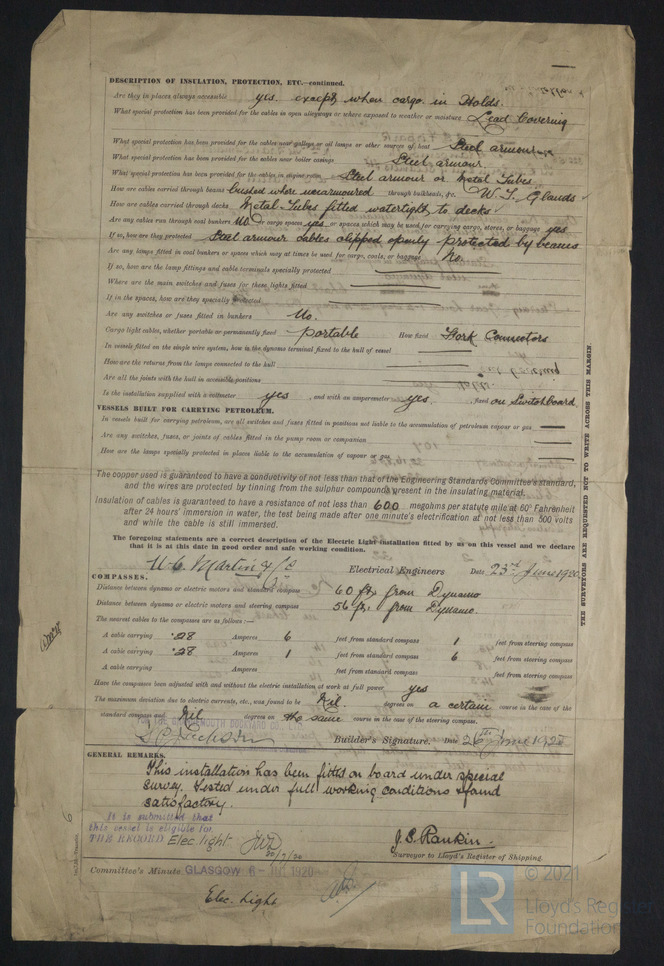 DESCRIPTION OF INSULATION, PROTECTION, ETC.—continued.
Are they in places always accessible yes except when cargo in Holds.
What special protection has been provided for the cables in open alleyways or where exposed to weather or moisture Lead Covering
What special protection has been provided for the cables near galleys or oil lamps or other sources of heat Steel armour
What special protection has been provided for the cables near boiler casings Steel armour.
What special protection has been provided for the cables in engine room Steel armour or Metal Tubes.
How are cables carried through beams bushed where unarmoured through bulkheads, &c. W.T. Glands
How are cables carried through decks Metal Tubes fitted watertight to decks
Are any cables run through coal bunkers No or cargo spaces yes or spaces which may be used for carrying cargo, stores, or baggage yes
If so, how are they protected Steel armour cables clipped openly protected by beams
Are any lamps fitted in coal bunkers or spaces which may at times be used for cargo, coals, or baggage No.
If so, how are the lamp fittings and cable terminals specially protected
Where are the main switches and fuses for these lights fitted
If in the spaces, how are they specially protected
Are any switches or fuses fitted in bunkers No.
Cargo light cables, whether portable or permanently fixed portable How fixed Work Connectors
In vessels fitted on the single wire system, how is the dynamo terminal fixed to the hull of vessel
How are the returns from the lamps connected to the hull
Are all the joints with the hull in accessible positions
Is the installation supplied with a voltmeter yes, and with an amperemeter yes, fixed on Switchboard
VESSELS BUILT FOR CARRYING PETROLEUM.
In vessels built for carrying petroleum, are all switches and fuses fitted in positions not liable to the accumulation of petroleum vapour or gas
Are any switches, fuses, or joints of cables fitted in the pump room or companion
How are the lamps specially protected in places liable to the accumulation of vapour or gas
The copper used is guaranteed to have a conductivity of not less than that of the Engineering Standards Committee's standard,
and the wires are protected by tinning from the sulphur compounds present in the insulating material.
Insulation of cables is guaranteed to have a resistance of not less than 600 megohms per statute mile at 60° Fahrenheit
after 24 hours' immersion in water, the test being made after one minute's electrification at not less than 500 volts
and while the cable is still immersed.
The foregoing statements are a correct description of the Electric Light installation fitted by us on this vessel and we declare
that it is at this date in good order and safe working condition.
W. C. Martin & Co Electrical Engineers Date 23rd June 1920
COMPASSES.
Distance between dynamo or electric motors and standard compass 60 ft from Dynamo
Distance between dynamo or electric motors and steering compass 56 ft from Dynamo.
The nearest cables to the compasses are as follows:—
A cable carrying .28 Amperes 6 feet from standard compass 1 feet from steering compass
A cable carrying .28 Amperes 1 feet from standard compass 6 feet from steering compass
A cable carrying Amperes feet from standard compass feet from steering compass
Have the compasses been adjusted with and without the electric installation at work at full power yes
The maximum deviation due to electric currents, etc., was found to be Nil degrees on a certain course in the case of the
standard compass and Nil degrees on the same course in the case of the steering compass.
Builder's Signature. Date 26th June 1920
GENERAL REMARKS.
This installation has been fitted on board under special
survey. Tested under full working conditions & found
satisfactory.
It is submitted that
this vessel is eligible for
THE RECORD Elec. light 20/7/20
J. S. Rankin.
Surveyor to Lloyd's Register of Shipping.
Committee's Minute GLASGOW 6 - JUL 1920
Elec. Light
THE SURVEYORS ARE REQUESTED NOT TO WRITE ACROSS THIS MARGIN.
© 2021
LR Lloyd's Register
Foundation